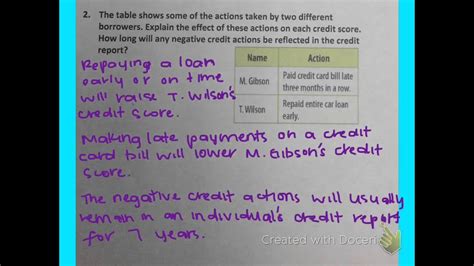 2. The table shows some of the actions taken by two different
borrowers. Explain the effect of these actions on each credit score.
How long will any negative credit actions be reflected in the credit
report?
Name Action
M. Gibson Paid credit card bill late
three months in a row.
T. Wilson Repaid entire car loan
early.
Repaying a loan
early or on time
will raise T. Wilson's
credit score.
Making late payments on a credit
card bill will lower M. Gibson's credit
score.
The negative credit actions will usually
remain in an individual's credit report
for 7 years.
Created with Doceri